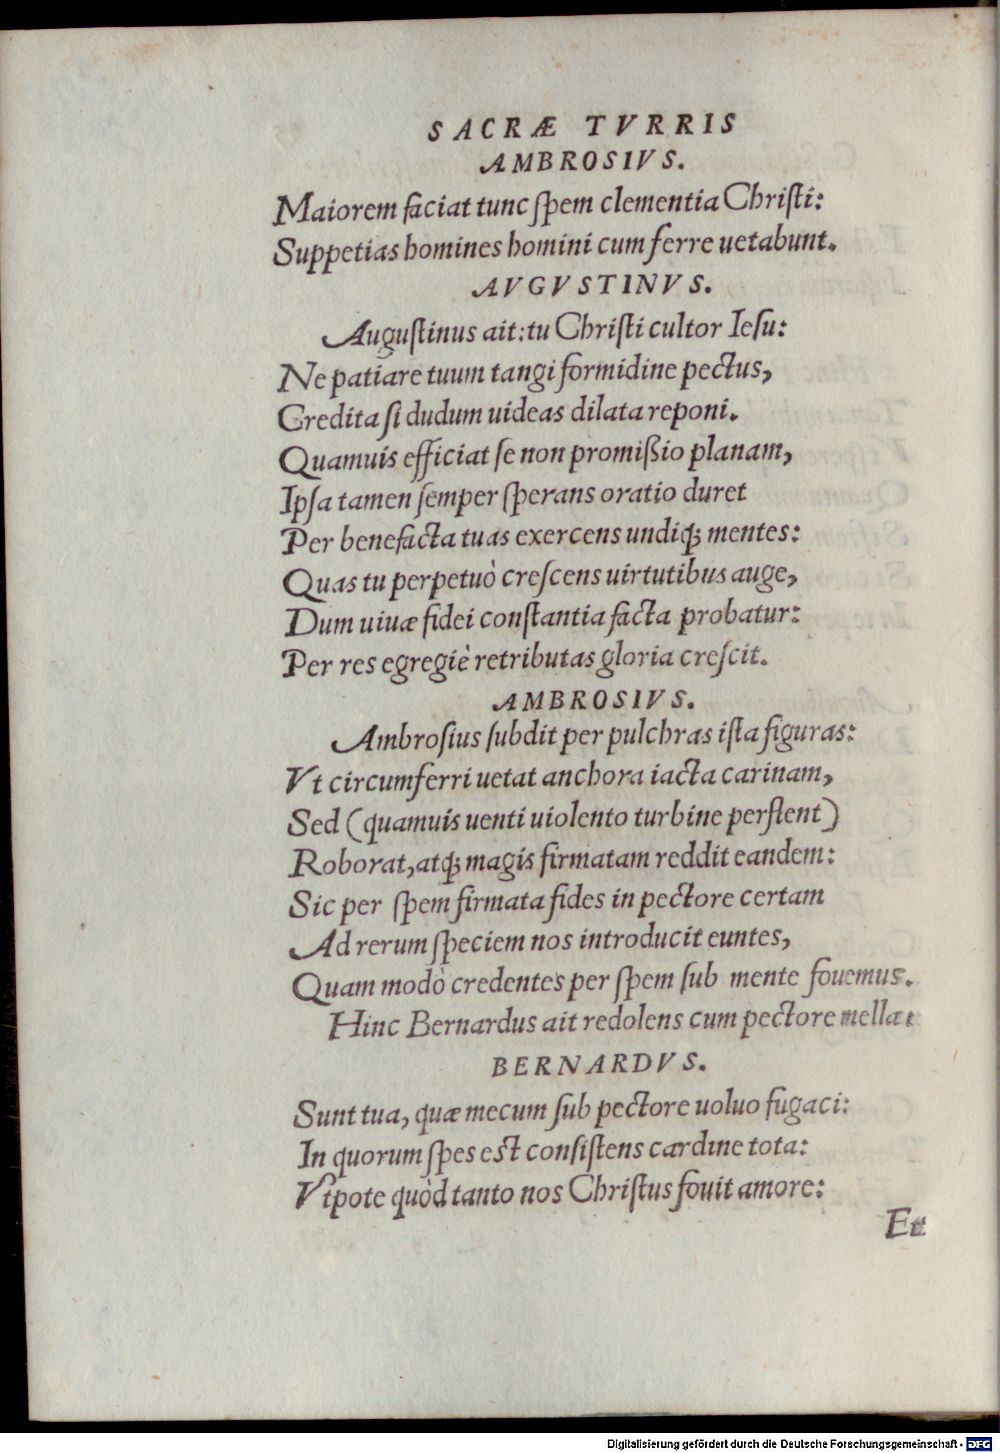 SACRÆ TVRRIS
AMBROSIVS.
Maiorem faciat tunc ſpem clementia Chriſti:
Suppetias homines homini cum ferre uetabunt.
AVGVSTINVS.
Auguſtinus ait: tu Chriſti cultor Ieſu:
Ne patiare tuum tangi formidine pectus,
Credita ſi dudum uideas dilata reponi.
Quamuis efficiat ſe non promißio planam,
Ipſa tamen ſemper ſperans oratio duret
Per benefacta tuas exercens undiq; mentes:
Quas tu perpetuò creſcens uirtutibus auge,
Dum uiuæ fidei conſtantia facta probatur:
Per res egregiè retributas gloria creſcit.
AMBROSIVS.
Ambroſius ſubdit per pulchras iſta figuras:
Vt circumferri uetat anchora iacta carinam,
Sed (quamuis uenti uiolento turbine perſtent)
Roborat, atq; magis firmatam reddit eandem:
Sic per ſpem firmata fides in pectore certam
Ad rerum ſpeciem nos introducit euntes,
Quam modò credentes per ſpem ſub mente fouemus.
Hinc Bernardus ait redolens cum pectore mella:
BERNARDVS.
Sunt tua, quæ mecum ſub pectore uoluo fugaci:
In quorum ſpes eſt conſiſtens cardine tota:
Vtpote quòd tanto nos Chriſtus fouit amore:
Et
Digitalisierung gefördert durch die Deutsche Forschungsgemeinschaft - DFG